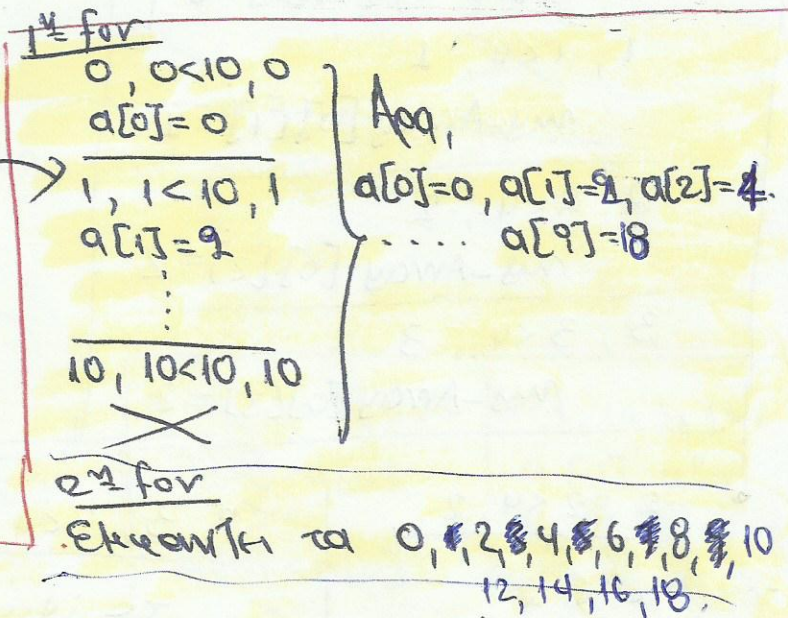 1η for
0, 0<10, 0
a[0]=0
1, 1<10, 1
a[1]=2
⋮
10, 10<10, 10
Άρα,
a[0]=0, a[1]=2, a[2]=4.
..... a[9]=18
2η for
Εμφανίζει τα 0, 2, 4, 6, 8, 10
12, 14, 16, 18.